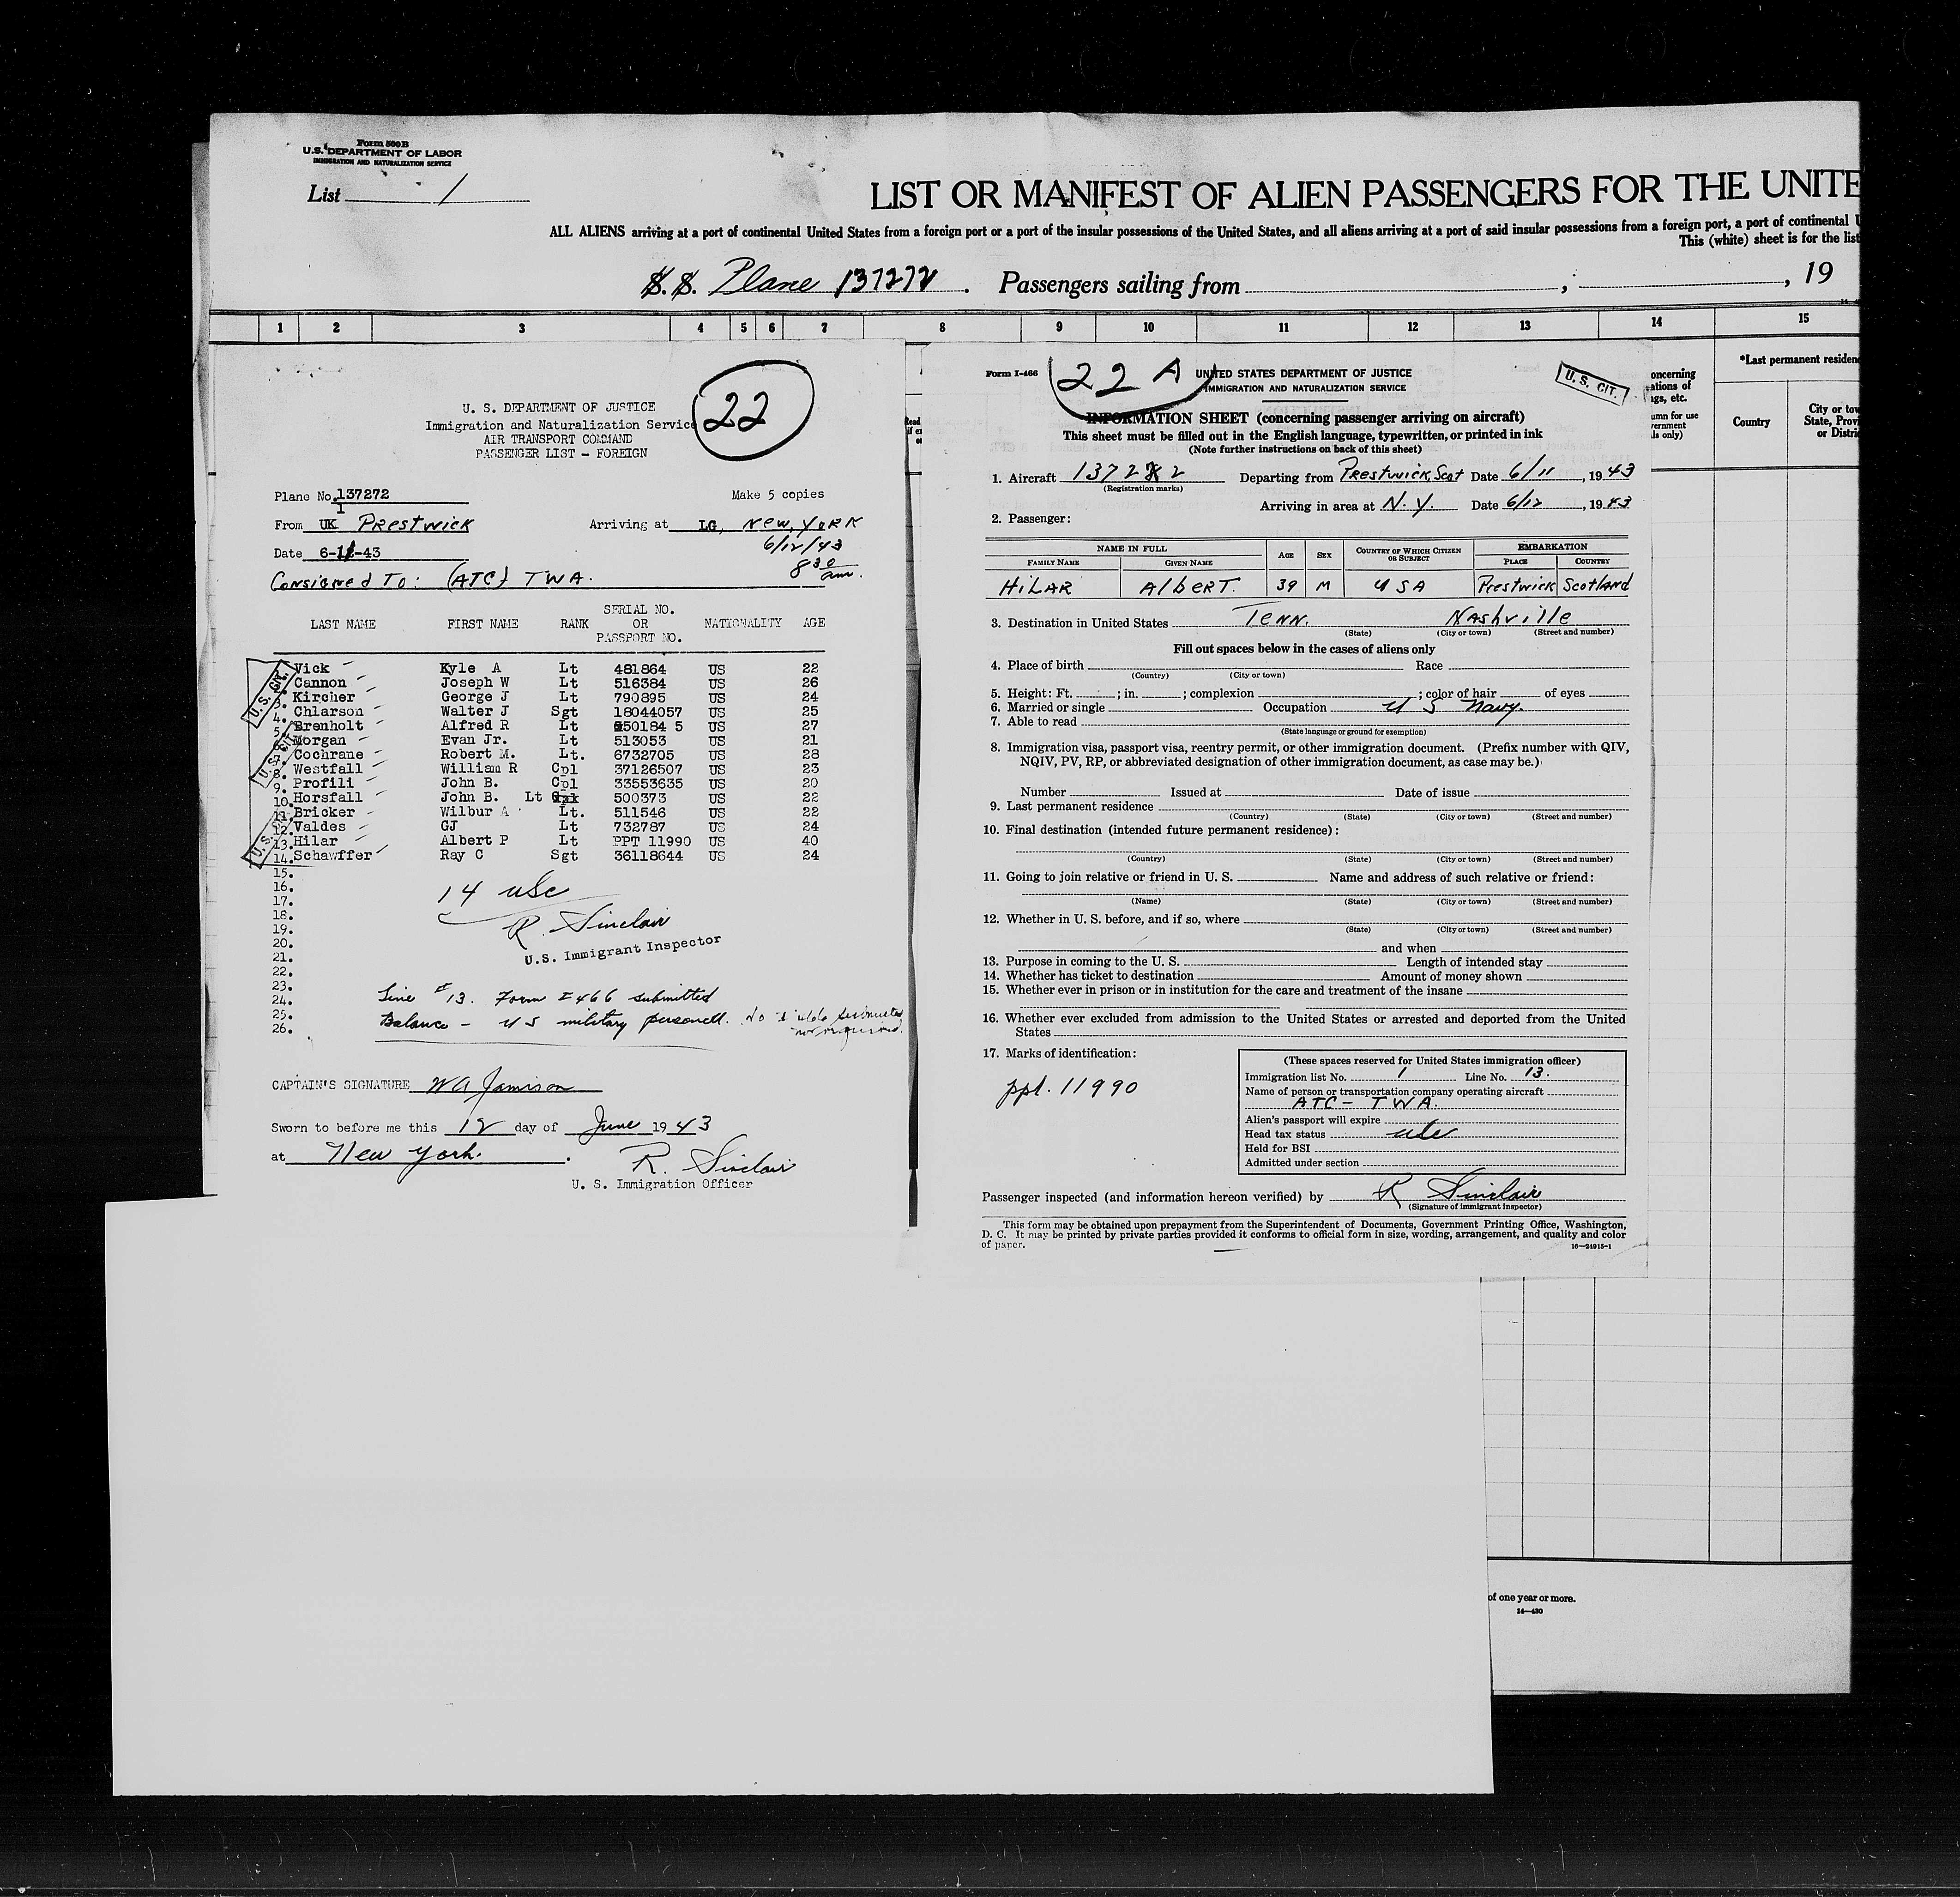 Form 500B
U.S. DEPARTMENT OF LABOR
IMMIGRATION AND NATURALIZATION SERVICE
List 1
LIST OR MANIFEST OF ALIEN PASSENGERS FOR THE UNITE
ALL ALIENS arriving at a port of continental United States from a foreign port or a port of the insular possessions of the United States, and all aliens arriving at a port of said insular possessions from a foreign port, a port of continental U
This (white) sheet is for the list
S.S. Plane 137272. Passengers sailing from , , 19
1 2 3 4 5 6 7 8 9 10 11 12 13 14 15
22
U. S. DEPARTMENT OF JUSTICE
Immigration and Naturalization Service
AIR TRANSPORT COMMAND
PASSENGER LIST - FOREIGN
Plane No. 137272 Make 5 copies
From UK Prestwick Arriving at LG, New York
6/12/43
Date 6-11-43 8 30 am.
Consigned To: (ATC) TWA.
LAST NAME FIRST NAME RANK SERIAL NO. OR PASSPORT NO. NATIONALITY AGE
U.S. CIT.
Vick Kyle A Lt 481864 US 22
Cannon Joseph W Lt 516384 US 26
3. Kircher George J Lt 790895 US 24
4. Chlarson Walter J Sgt 18044057 US 25
5. Brenholt Alfred R Lt 50184 5 US 27
6. Morgan Evan Jr. Lt 513053 US 21
7. Cochrane Robert M. Lt. 6732705 US 28
8. Westfall William R Cpl 37126507 US 23
9. Profili John B. Cpl 33553635 US 20
10. Horsfall John B. Lt 500373 US 22
11. Bricker Wilbur A Lt. 511546 US 22
12. Valdes GJ Lt 732787 US 24
13. Hilar Albert P Lt PPT 11990 US 40
14. Schawffer Ray C Sgt 36118644 US 24
15.
16. 14 usc
17.
18. R. Sinclair
19.
20. U.S. Immigrant Inspector
21.
22.
23.
24. Line #13. Form I 466 submitted
25. Balance - US military personell. No I 466 submitted
26. not required.
CAPTAIN'S SIGNATURE W A Jamison
Sworn to before me this 12 day of June 1943
at New York. R. Sinclair
U. S. Immigration Officer
Form I-466 22 A UNITED STATES DEPARTMENT OF JUSTICE U. S. CIT.
IMMIGRATION AND NATURALIZATION SERVICE
INFORMATION SHEET (concerning passenger arriving on aircraft)
This sheet must be filled out in the English language, typewritten, or printed in ink
(Note further instructions on back of this sheet)
1. Aircraft 137272 Departing from Prestwick, Scot Date 6/11, 1943
(Registration marks)
Arriving in area at N.Y. Date 6/12, 1943
2. Passenger:
NAME IN FULL AGE SEX COUNTRY OF WHICH CITIZEN OR SUBJECT EMBARKATION
FAMILY NAME GIVEN NAME PLACE COUNTRY
HILAR Albert. 39 M USA Prestwick Scotland
3. Destination in United States Tenn. Nashville
(State) (City or town) (Street and number)
Fill out spaces below in the cases of aliens only
4. Place of birth Race
(Country) (City or town)
5. Height: Ft. ; in. ; complexion ; color of hair of eyes
6. Married or single Occupation U S Navy.
7. Able to read
(State language or ground for exemption)
8. Immigration visa, passport visa, reentry permit, or other immigration document. (Prefix number with QIV,
NQIV, PV, RP, or abbreviated designation of other immigration document, as case may be.)
Number Issued at Date of issue
9. Last permanent residence
(Country) (State) (City or town) (Street and number)
10. Final destination (intended future permanent residence):
(Country) (State) (City or town) (Street and number)
11. Going to join relative or friend in U. S. Name and address of such relative or friend:
(Name) (State) (City or town) (Street and number)
12. Whether in U. S. before, and if so, where
(State) (City or town) (Street and number)
and when
13. Purpose in coming to the U. S. Length of intended stay
14. Whether has ticket to destination Amount of money shown
15. Whether ever in prison or in institution for the care and treatment of the insane
16. Whether ever excluded from admission to the United States or arrested and deported from the United
States
17. Marks of identification:
ppt. 11990
(These spaces reserved for United States immigration officer)
Immigration list No. 1 Line No. 13.
Name of person or transportation company operating aircraft
ATC - TWA.
Alien's passport will expire
Head tax status usc
Held for BSI
Admitted under section
Passenger inspected (and information hereon verified) by R Sinclair
(Signature of immigrant inspector)
This form may be obtained upon prepayment from the Superintendent of Documents, Government Printing Office, Washington,
D. C. It may be printed by private parties provided it conforms to official form in size, wording, arrangement, and quality and color
of paper. 16—24915-1
*Last permanent residen
Country City or tow
State, Provi
or Distri
of one year or more.
14—430